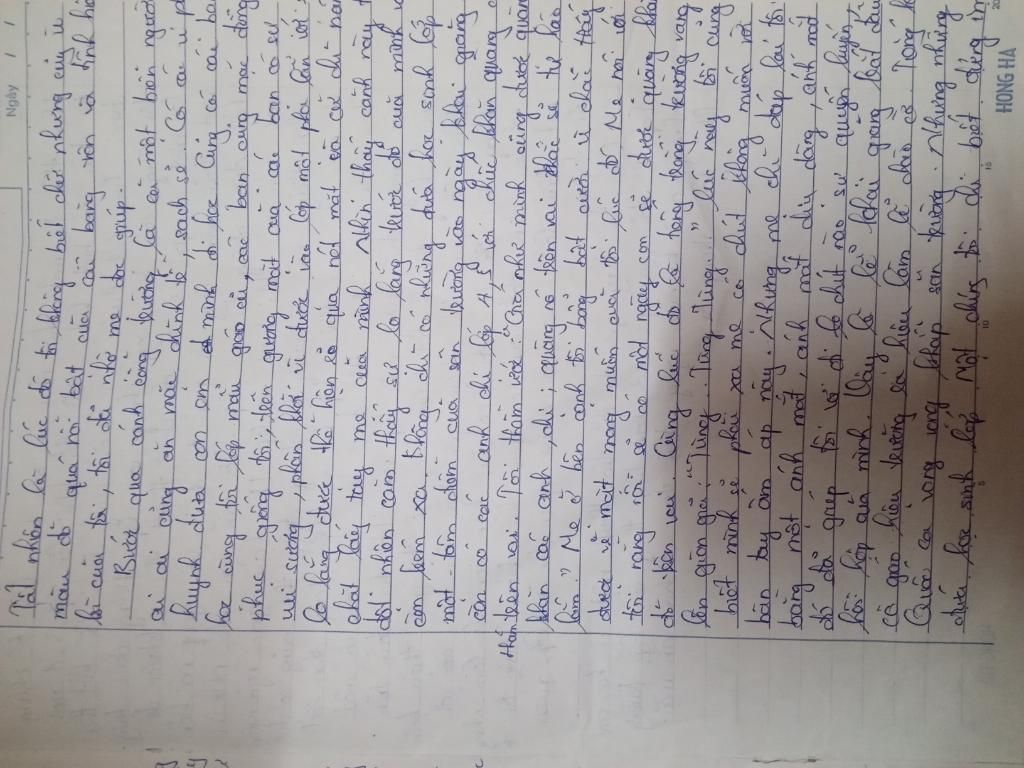 Ngày /
Tất nhiên là lúc đó tôi không biết chữ nhưng cũng
màu đỏ quá nổi bật của cái bảng tên và tính
bì của tôi, tôi đã nhờ mẹ đọc giúp.
Bước qua cánh cổng trường, là cả một biển người
ai ai cũng ăn mặc chỉnh tề, sạch sẽ. Có các vị phụ
huynh đưa con em mình đi học. Cũng có các bạn
bè cùng tôi, lớp mẫu giáo cả, các bạn cũng mặc đồng
phục giống tôi, trên gương mặt của các bạn có sự
vui sướng, phấn khởi vì được vào lớp một pha lẫn với
lo lắng được thể hiện qua nét mặt và cái chỉ nắm
chặt lấy tay mẹ của mình. Nhìn thấy cảnh này
đột nhiên cảm thấy sự lo lắng trước đó của mình
còn kém xa. Không chỉ có những đứa học sinh lớp
một làm chộn của sân trường vào ngày khai giảng
còn có các anh chị lớp 4, 5 với chiếc khăn quàng
trên vai. Tôi thầm ước: "Giá như mình cũng được quàng
Hán
khăn các anh, chị, quàng nó trên vai chắc sẽ tự hào
lắm." Mẹ ở bên cạnh tôi bỗng bật cười vì chắc thấy
được vẻ mặt mong muốn của tôi lúc đó. Mẹ nói với
tôi rằng rồi sẽ có một ngày con sẽ được quàng khăn
đỏ trên vai. Cũng lúc đó là tiếng trống trường vang
lên giòn giã: "Tùng... Tùng Tùng..." lúc này tôi cũng
biết mình sẽ phải xa mẹ có chút không muốn rời
bàn tay ấm áp này. Nhưng mẹ chỉ đáp lại tôi
bằng một ánh mắt, ánh mắt dịu dàng, ánh mắt
đó đã giúp tôi vơi đi chút nào sự quyến luyến,
bồi hồi của mình. Vậy là lễ khai giảng bắt đầu
cả giáo hiệu trưởng ra hiệu làm lễ chào cờ. Tiếng
Quốc ca vang vọng khắp sân trường. Nhưng những
đứa học sinh lớp một chúng tôi chỉ biết đứng im
HONG HA
5
10
15